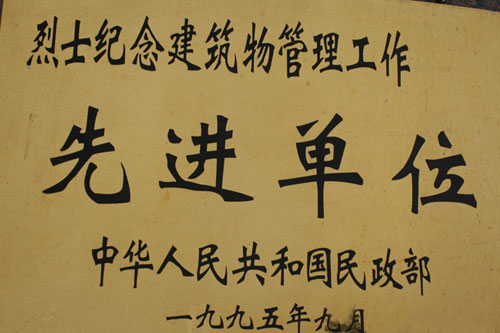 烈士纪念建筑物管理工作
先进单位
中华人民共和国民政部
一九九五年九月